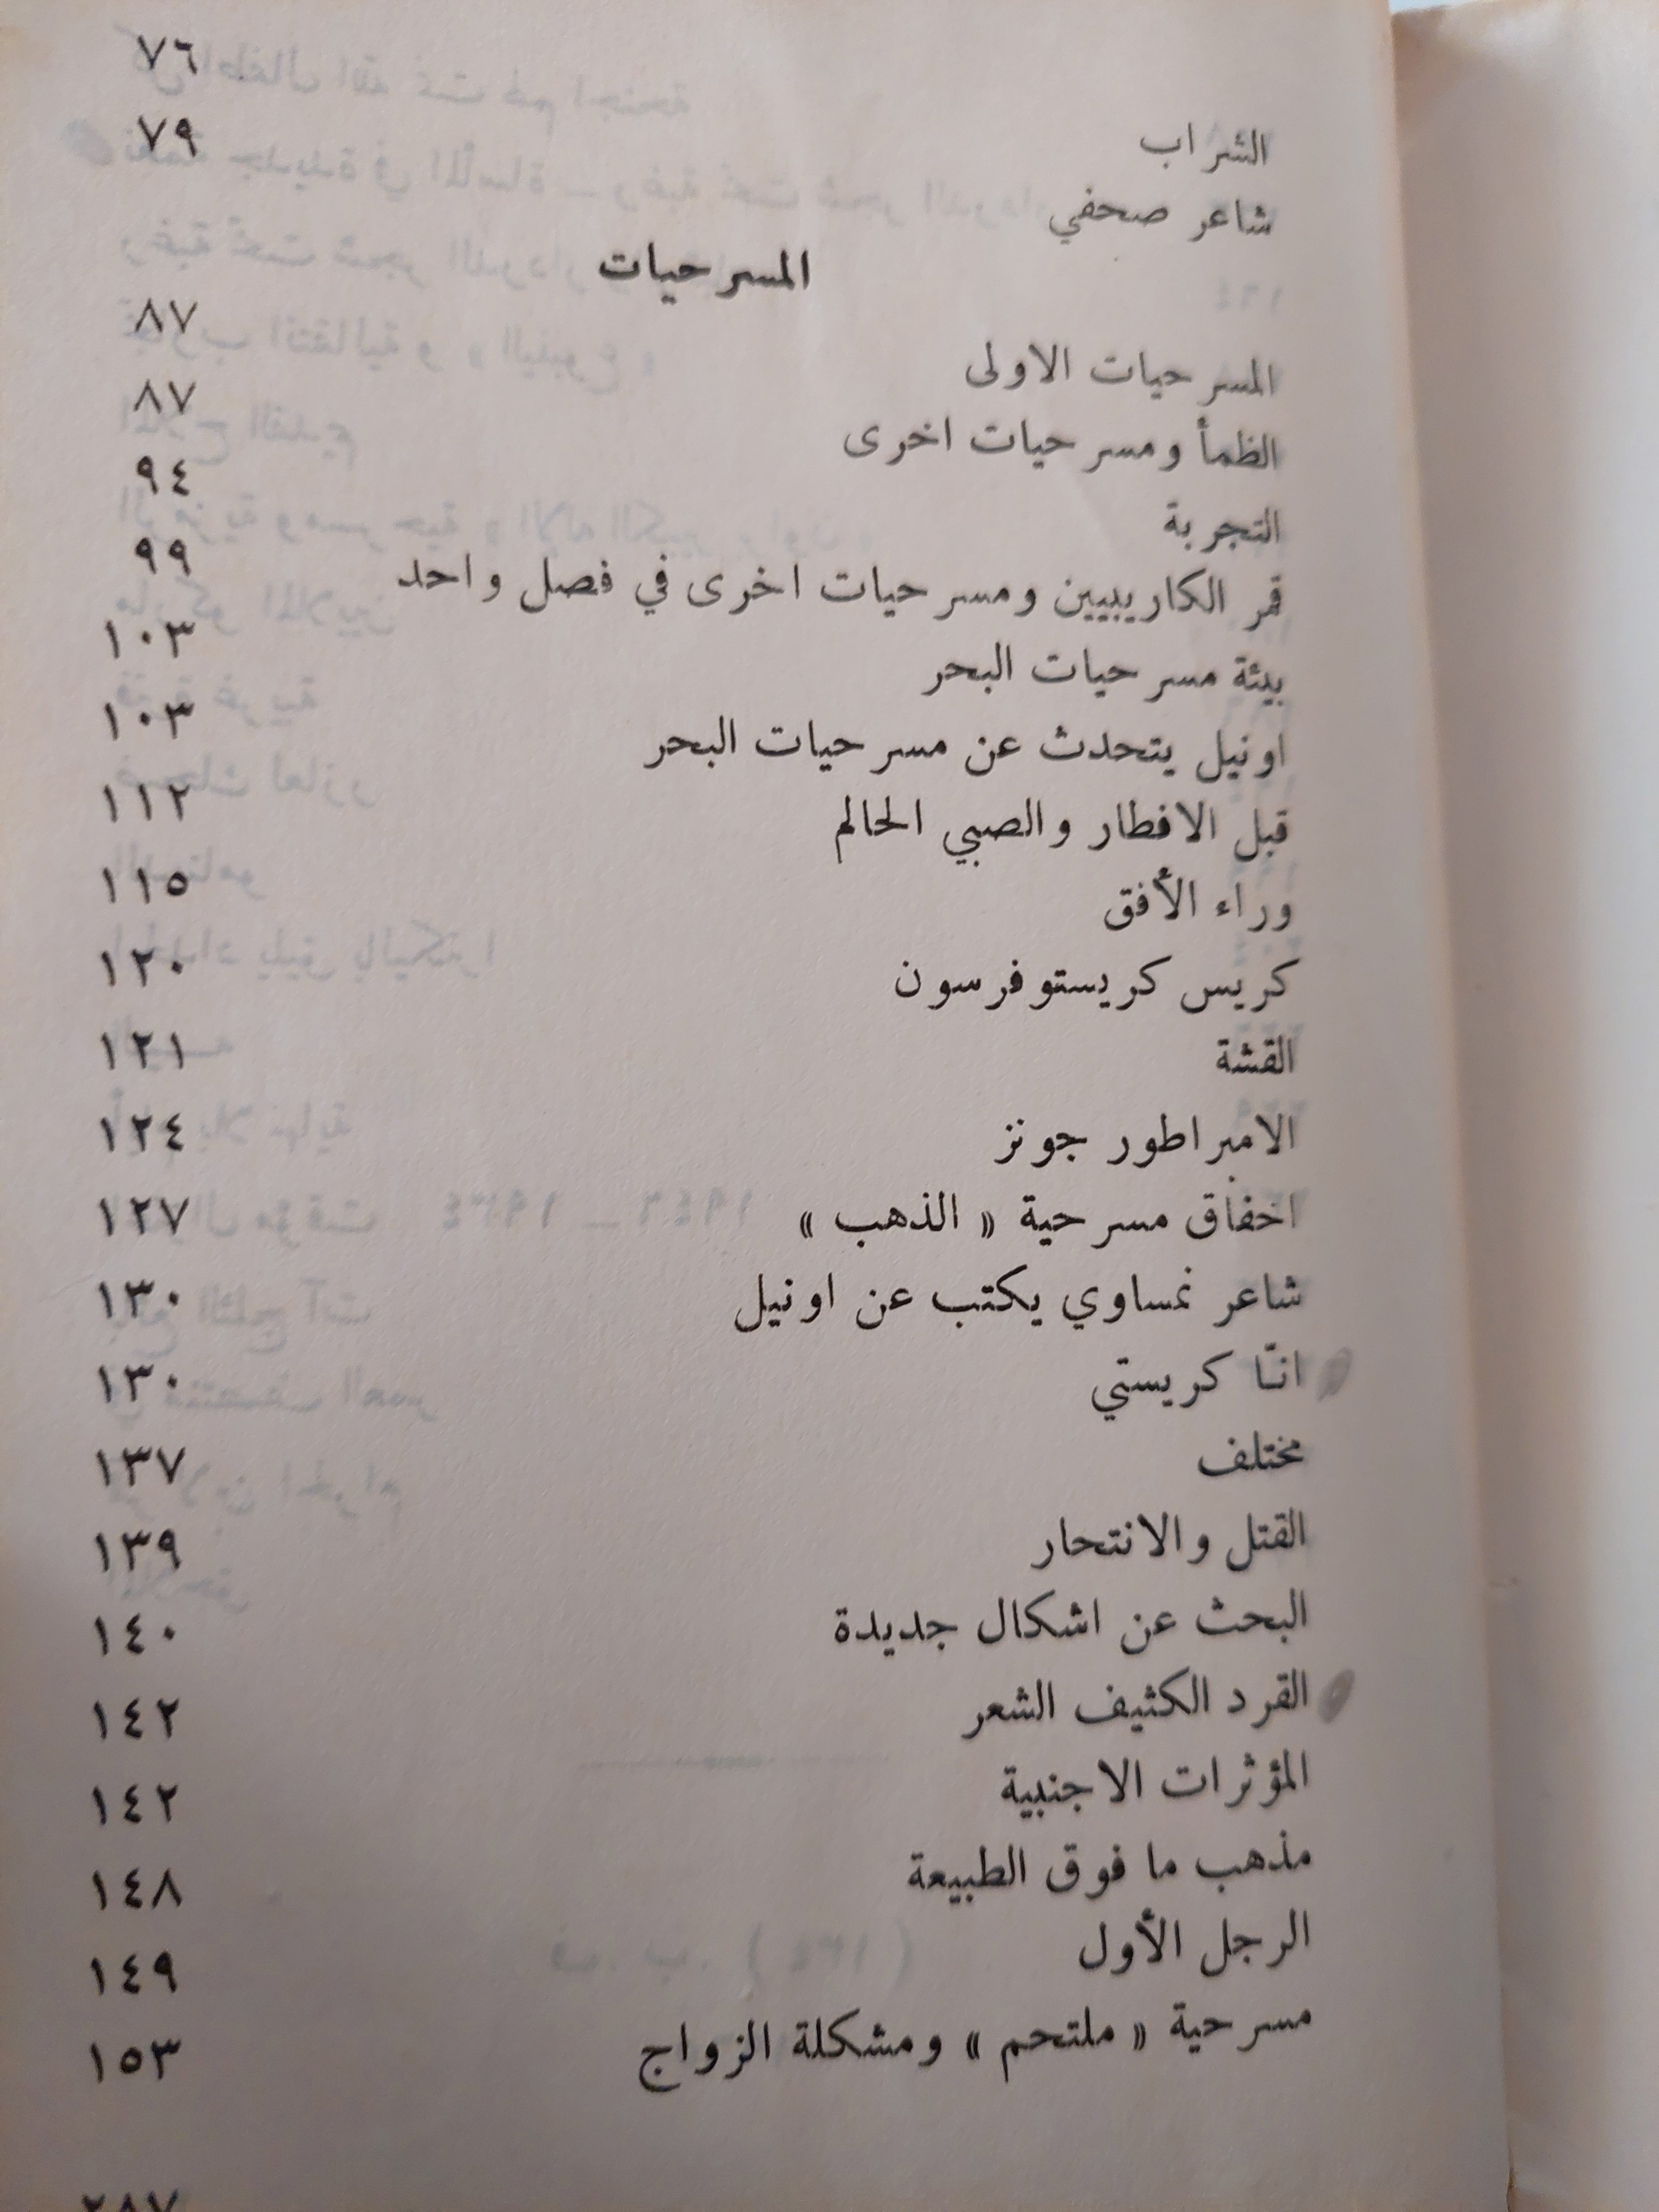 الشراب ٧٦
شاعر صحفي ٧٩
المسرحيات
المسرحيات الاولى ٨٧
الظمأ ومسرحيات اخرى ٨٧
التجربة ٩٤
قمر الكاريبيين ومسرحيات اخرى في فصل واحد ٩٩
بيئة مسرحيات البحر ١٠٣
اونيل يتحدث عن مسرحيات البحر ١٠٣
قبل الافطار والصبي الحالم ١١٢
وراء الأفق ١١٥
كريس كريستوفرسون ١٢٠
القشة ١٢١
الامبراطور جونز ١٢٤
اخفاق مسرحية « الذهب » ١٢٧
شاعر نمساوي يكتب عن اونيل ١٣٠
انّا كريستي ١٣٠
مختلف ١٣٧
القتل والانتحار ١٣٩
البحث عن اشكال جديدة ١٤٠
القرد الكثيف الشعر ١٤٢
المؤثرات الاجنبية ١٤٢
مذهب ما فوق الطبيعة ١٤٨
الرجل الأول ١٤٩
مسرحية « ملتحم » ومشكلة الزواج ١٥٣
٢٨٧